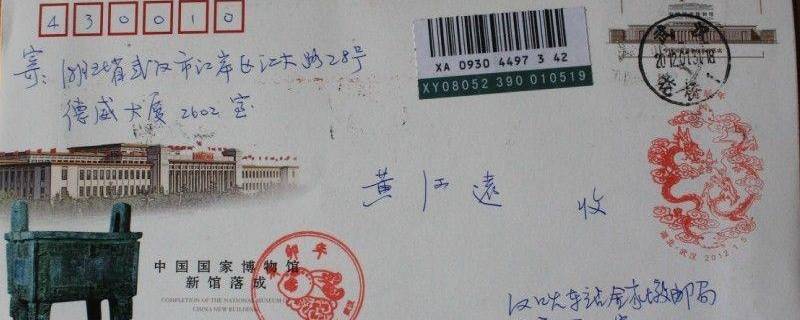 430010
寄：湖北省武汉市江岸区江大路28号
德威大厦2602室
XA 0930 4497 3 42
XY08052 390 010519
黄江远 收
中国国家博物馆
新馆落成
COMPLETION OF THE NATIONAL MUSEUM OF
CHINA NEW BUILDING
湖北·武汉 2012.1.5
汉口火车站金家墩邮局